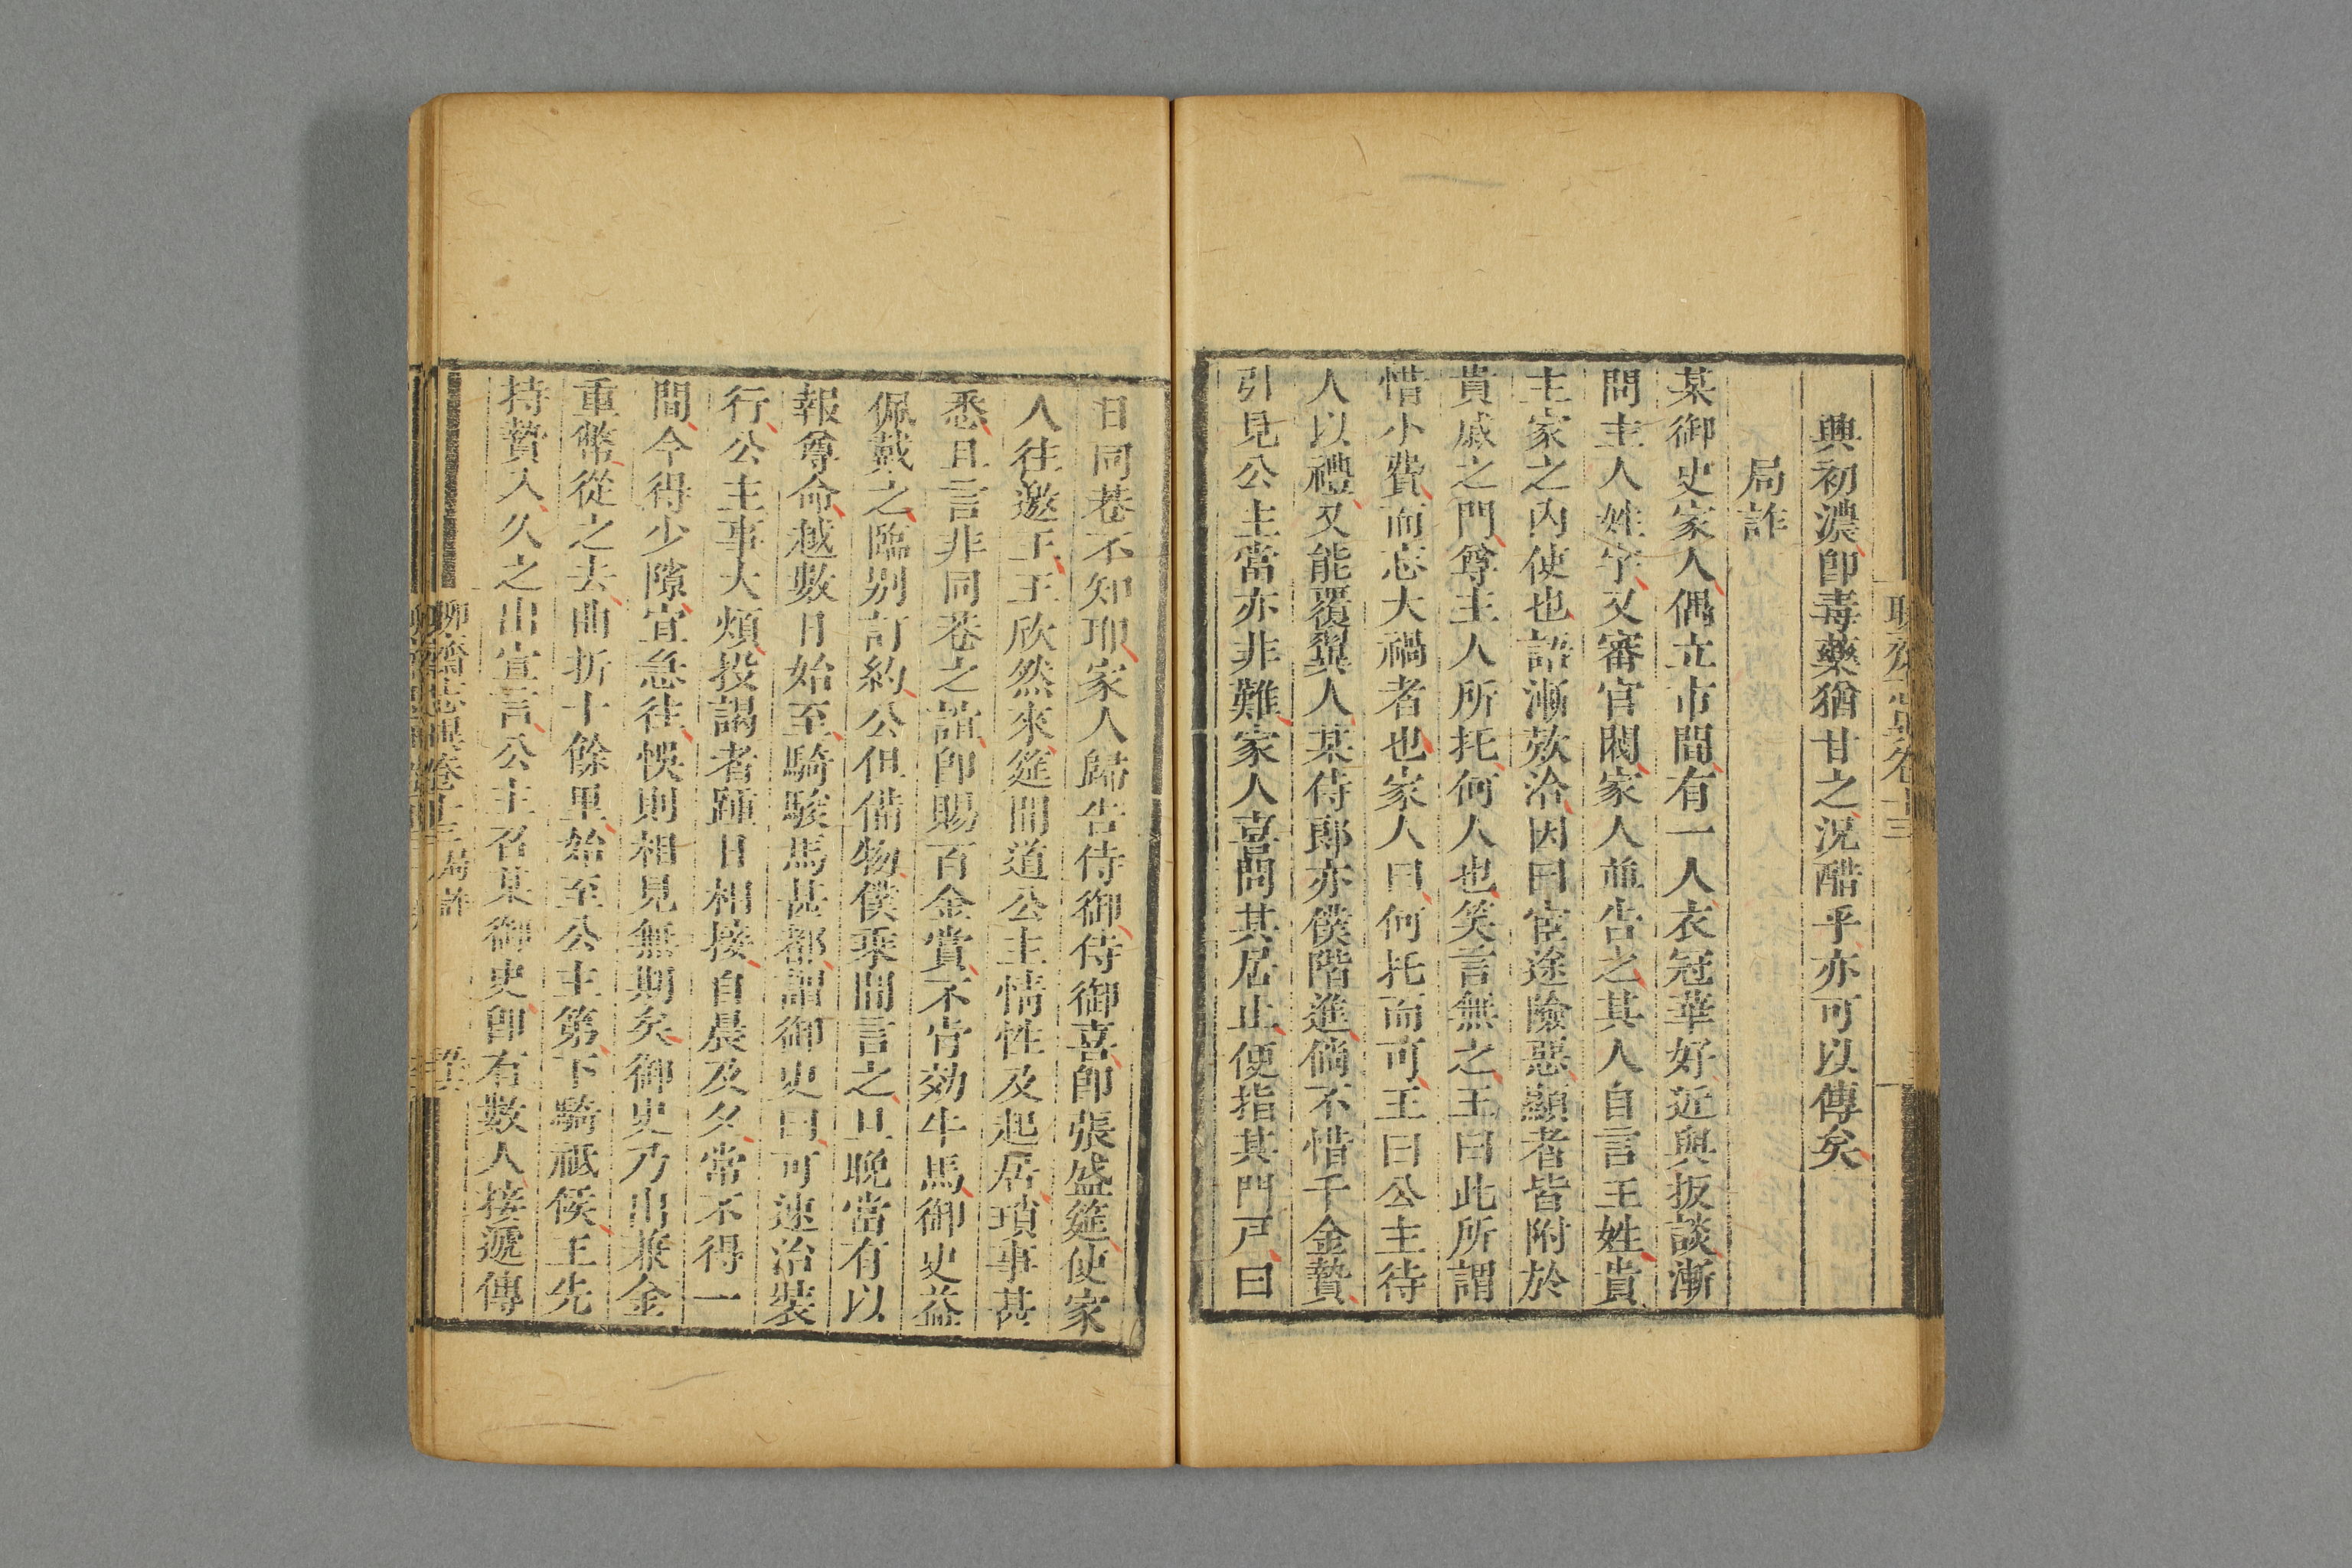 興初濃卽毒藥猶甘之況酷乎亦可以傳矣
局詐
某御史家人偶立市間有一人衣冠華好近與扳談漸
問主人姓字又審官閥家人並告之其人自言王姓貴
主家之內使也語漸欵洽因曰宦途險惡顯者皆附於
貴戚之門尊主人所托何人也笑言無之王曰此所謂
惜小費而忘大禍者也家人曰何托而可王曰公主待
人以禮又能覆翼人某侍郎亦僕階進倘不惜千金贄
引見公主當亦非難家人喜問其居止便指其門戸曰
日同巷不知耶家人歸告侍御侍御喜卽張盛筵使家
人往邀王王欣然來筵間道公主情性及起居瑣事甚
悉且言非同巷之誼卽賜百金賞不肯効牛馬御史益
佩戴之臨別訂約公但備物僕乘間言之旦晚當有以
報尊命越數日始至騎駿馬甚都謂御史曰可速治裝
行公主事大煩投謁者踵相接自晨及夕常不得一
間今得少隙宜急往悞則相見無期矣御史乃出兼金
重幣從之去曲折十餘里始至公主第下騎祗候王先
持贄入久之出宣言公主召某御史卽有數人接遞傳
聊齋志異卷十三 局詐